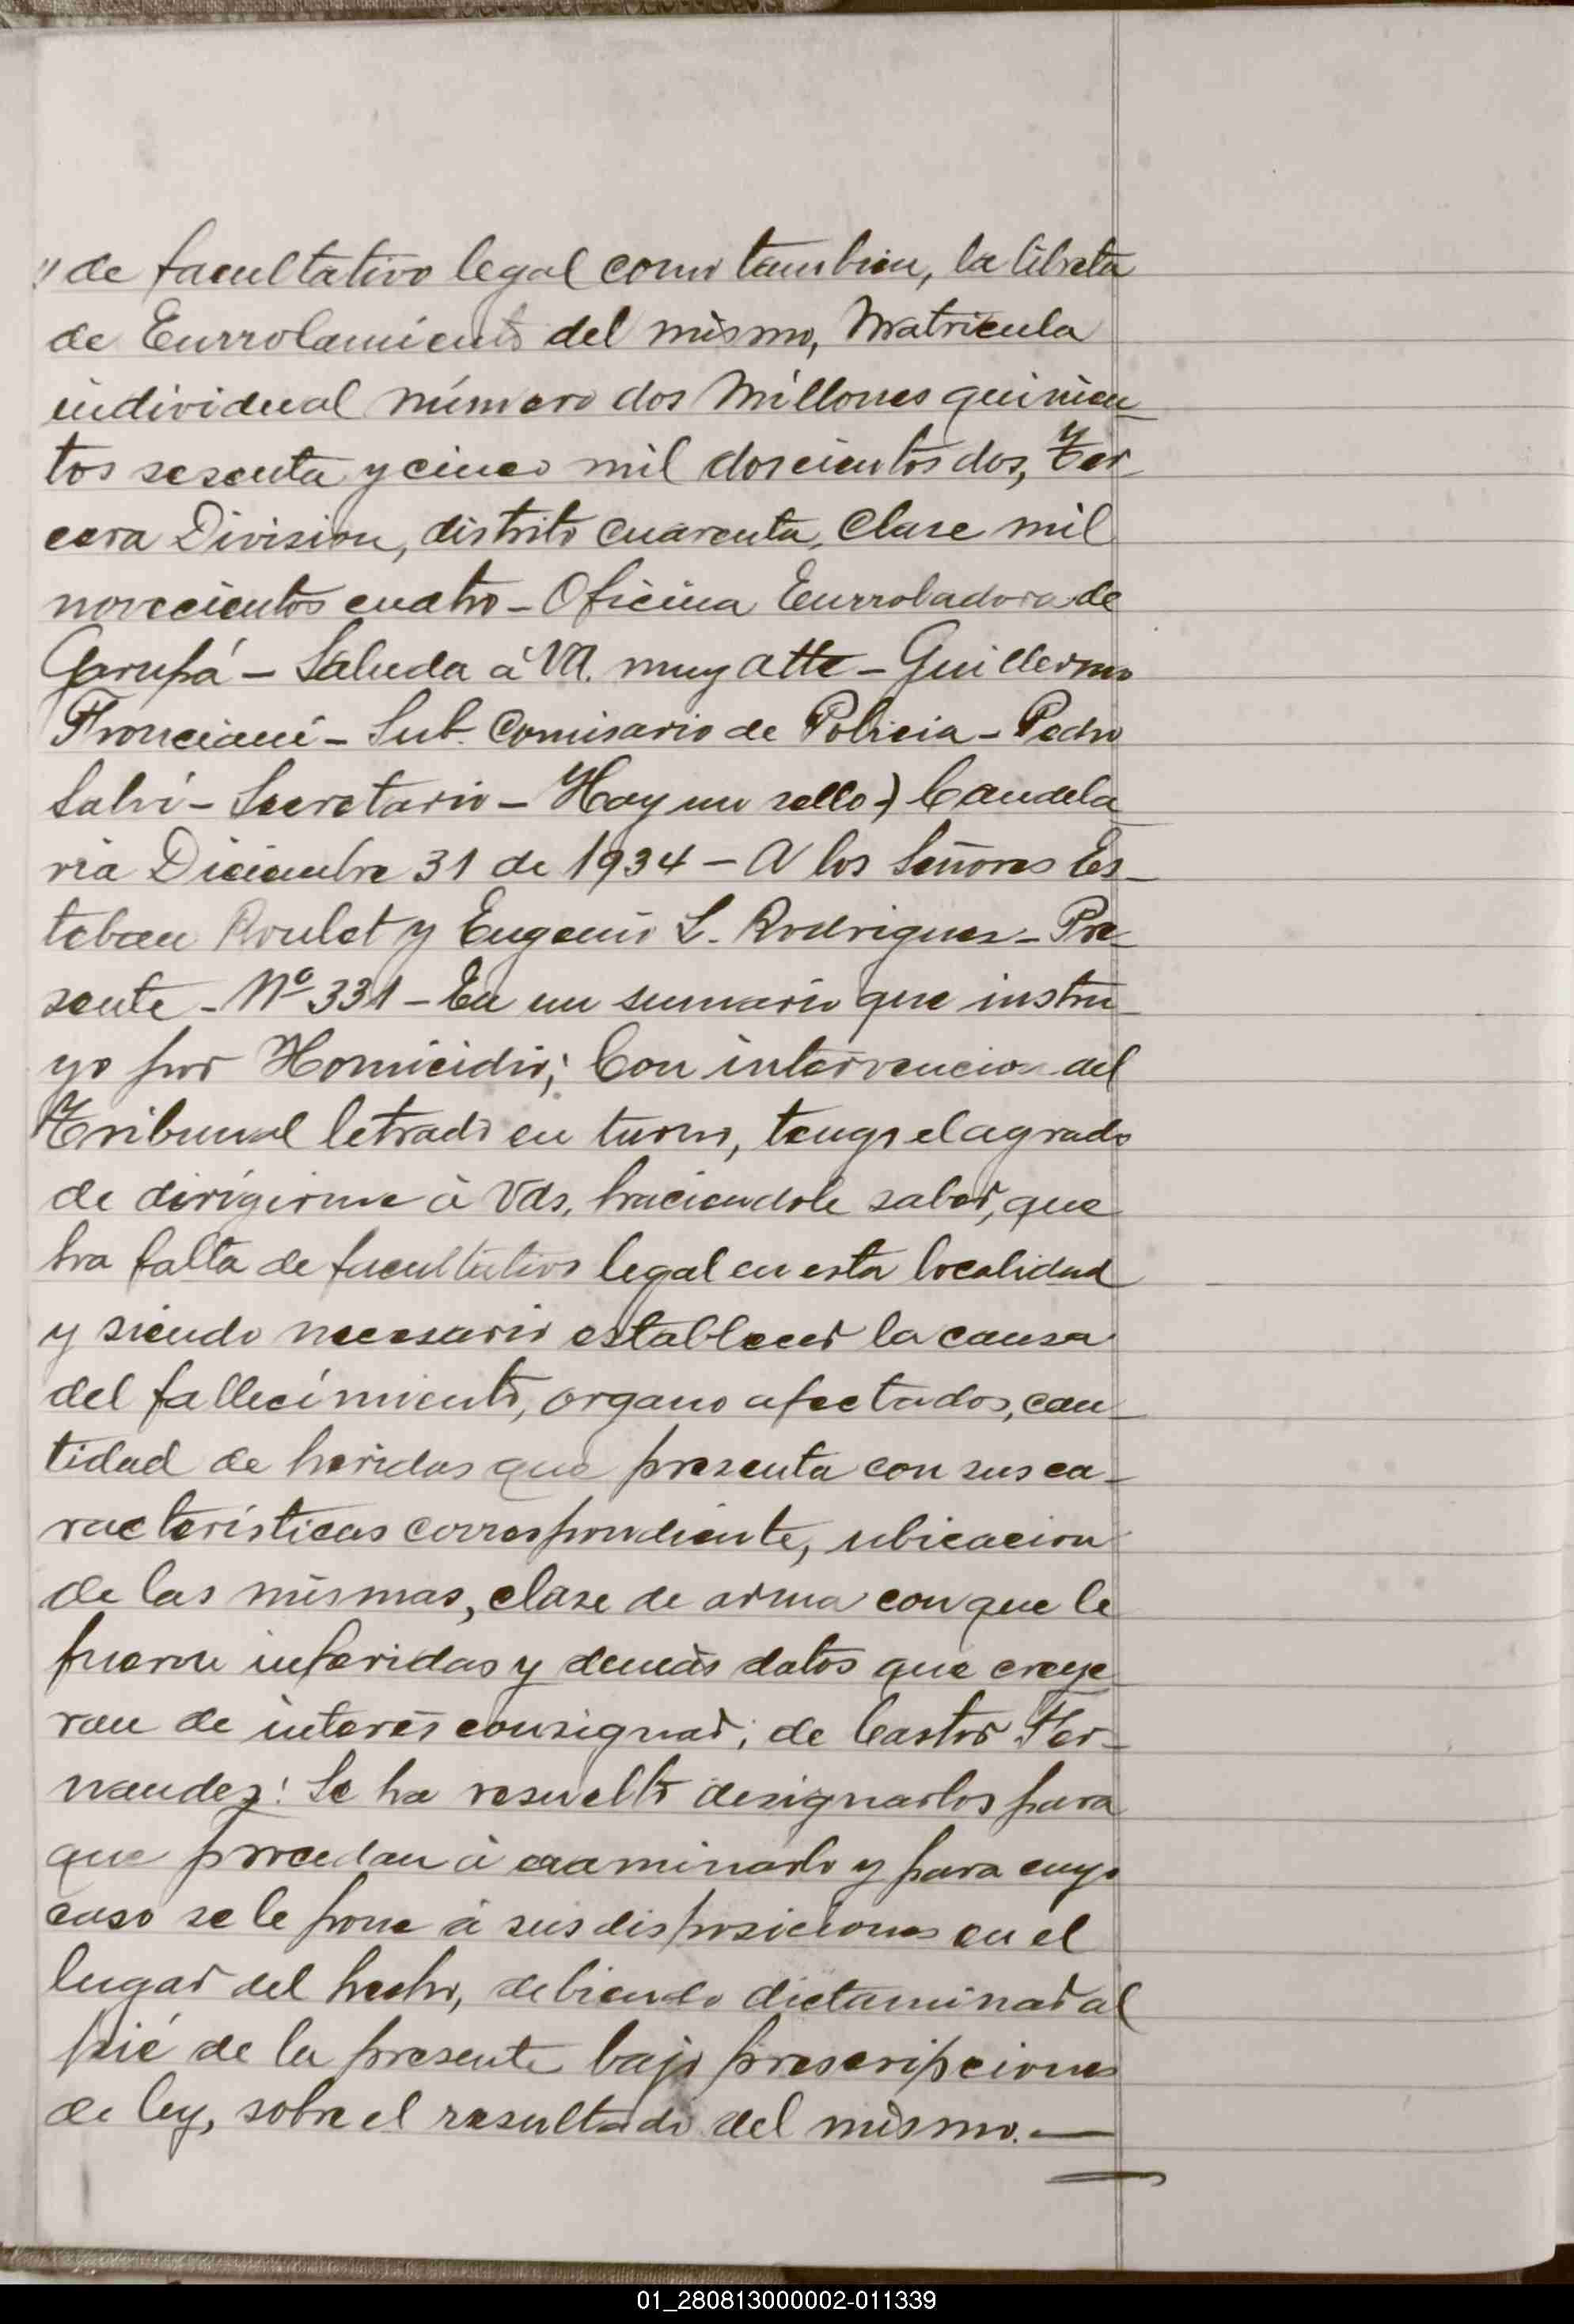 " de facultativo legal como tambien, la libreta
de Enrrolamiento del mismo, Matricula
individual número dos Millones quinien-
tos sesenta y cinco mil doscientos dos, Ter-
cera Division, distrito cuarenta, Clase mil
novecientos cuatro - Oficina Enrroladora de
Garupá - Saluda à Vd. muy atte - Guillermo
Fronciani - Sub. Comisario de Policia - Pedro
Salvi - Secretario - Hay un sello) Candela
ria Diciembre 31 de 1934 - A los Señores Es-
teban Roulet y Eugenio L. Rodriguez - Pre-
sente - Nº 331 - En un sumario que instru-
yo por Homicidio; Con intervencion del
Tribunal letrado en turno, tengo el agrado
de dirigirme à Vds. haciendole saber, que
ha falta de facultativo legal en esta localidad
y siendo necesario establecer la causa
del fallecimiento, organo afectados, can-
tidad de heridas que presenta con sus ca-
racterísticas correspondiente, ubicacion
de las mismas, clase de arma con que le
fueron inferidas y demàs datos que creye
ran de interés consignar; de Castor Fer-
nandez: Se ha resuelto designarlos para
que procedan à examinarlo y para cuyo
caso se le pone à sus disposiciones en el
lugar del hecho, debiendo dictaminar al
pié de la presente bajo prescripciones
de ley, sobre el resultado del mismo. —
01_280813000002-011339